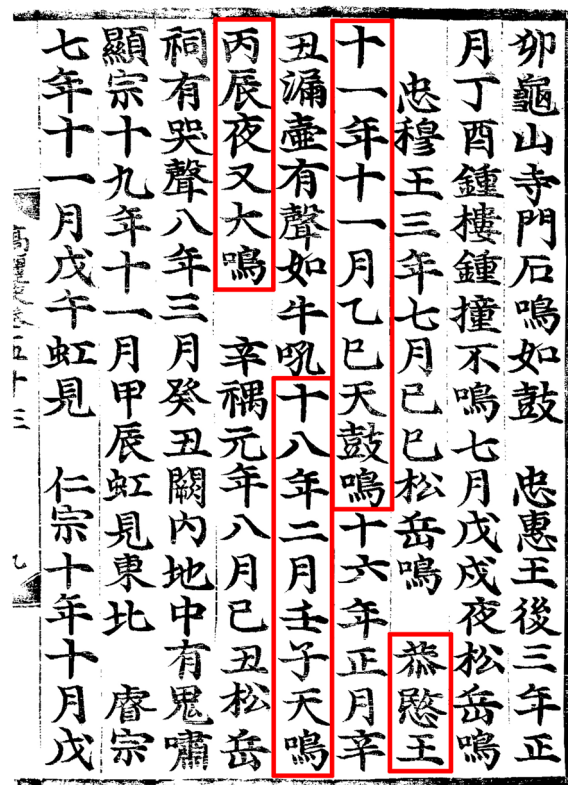 夘龜山寺門石鳴如鼓　忠惠王後三年正
月丁酉鍾樓鍾撞不鳴七月戊戌夜松岳鳴
忠穆王三年七月己巳松岳鳴　恭愍王
十一年十一月乙巳天鼓鳴十六年正月辛
丑漏壷有聲如牛吼十八年二月壬子天鳴
丙辰夜又大鳴　辛禑元年八月己丑松岳
祠有哭聲八年三月癸丑闕内地中有鬼嘯
顯宗十九年十一月甲辰虹見東北　睿宗
七年十一月戊午虹見　仁宗十年十月戊
高麗史卷五十三